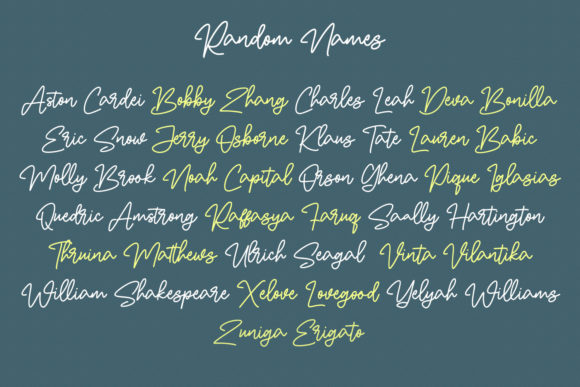 Random Names
Aston Cardei Bobby Zhang Charles Leah Deva Bonilla
Eric Snow Jerry Osborne Klaus Tate Lauren Babic
Molly Brook Noah Capital Orson Ghena Pique Iglasias
Quedric Amstrong Raffasya Faruq Saally Hartington
Thruina Matthews Ulrich Seagal Vinta Vilantika
William Shakespeare Xelove Lovegood Yelyah Williams
Zuniga Erigato